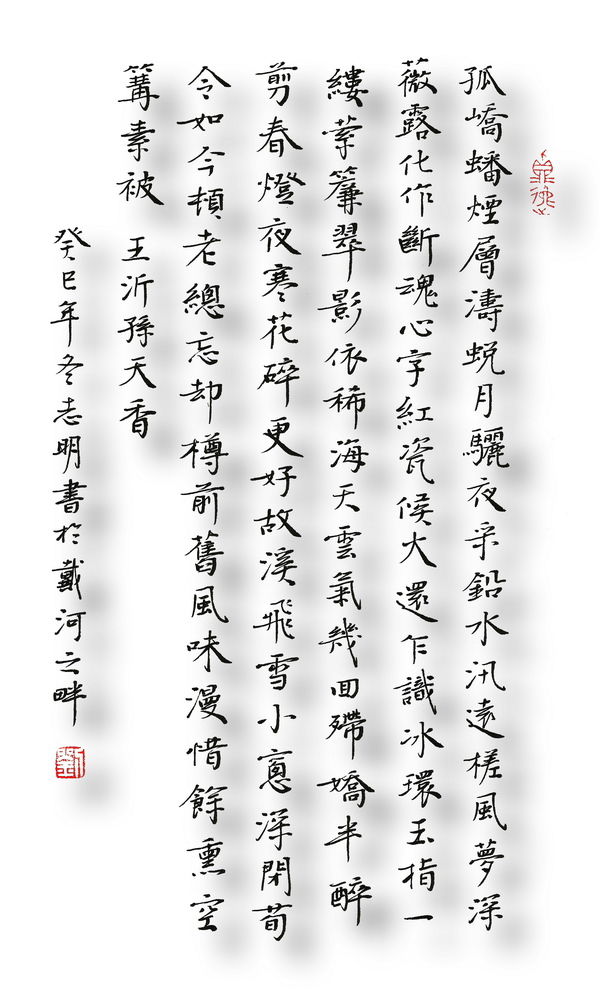 孤嶠蟠煙層濤蛻月驪夜采鉛水汛遠槎風夢深
薇露化作斷魂心字紅瓷候大還乍識冰環玉指一
縷縈簾翠影依稀海天雲氣幾回殢嬌半醉
剪春燈夜寒花碎更好故溪飛雪小窻深閉荀
令如今頓老總忘却樽前舊風味漫惜餘熏空
篝素被 王沂孫天香
癸巳年冬志明書於戴河之畔
劉